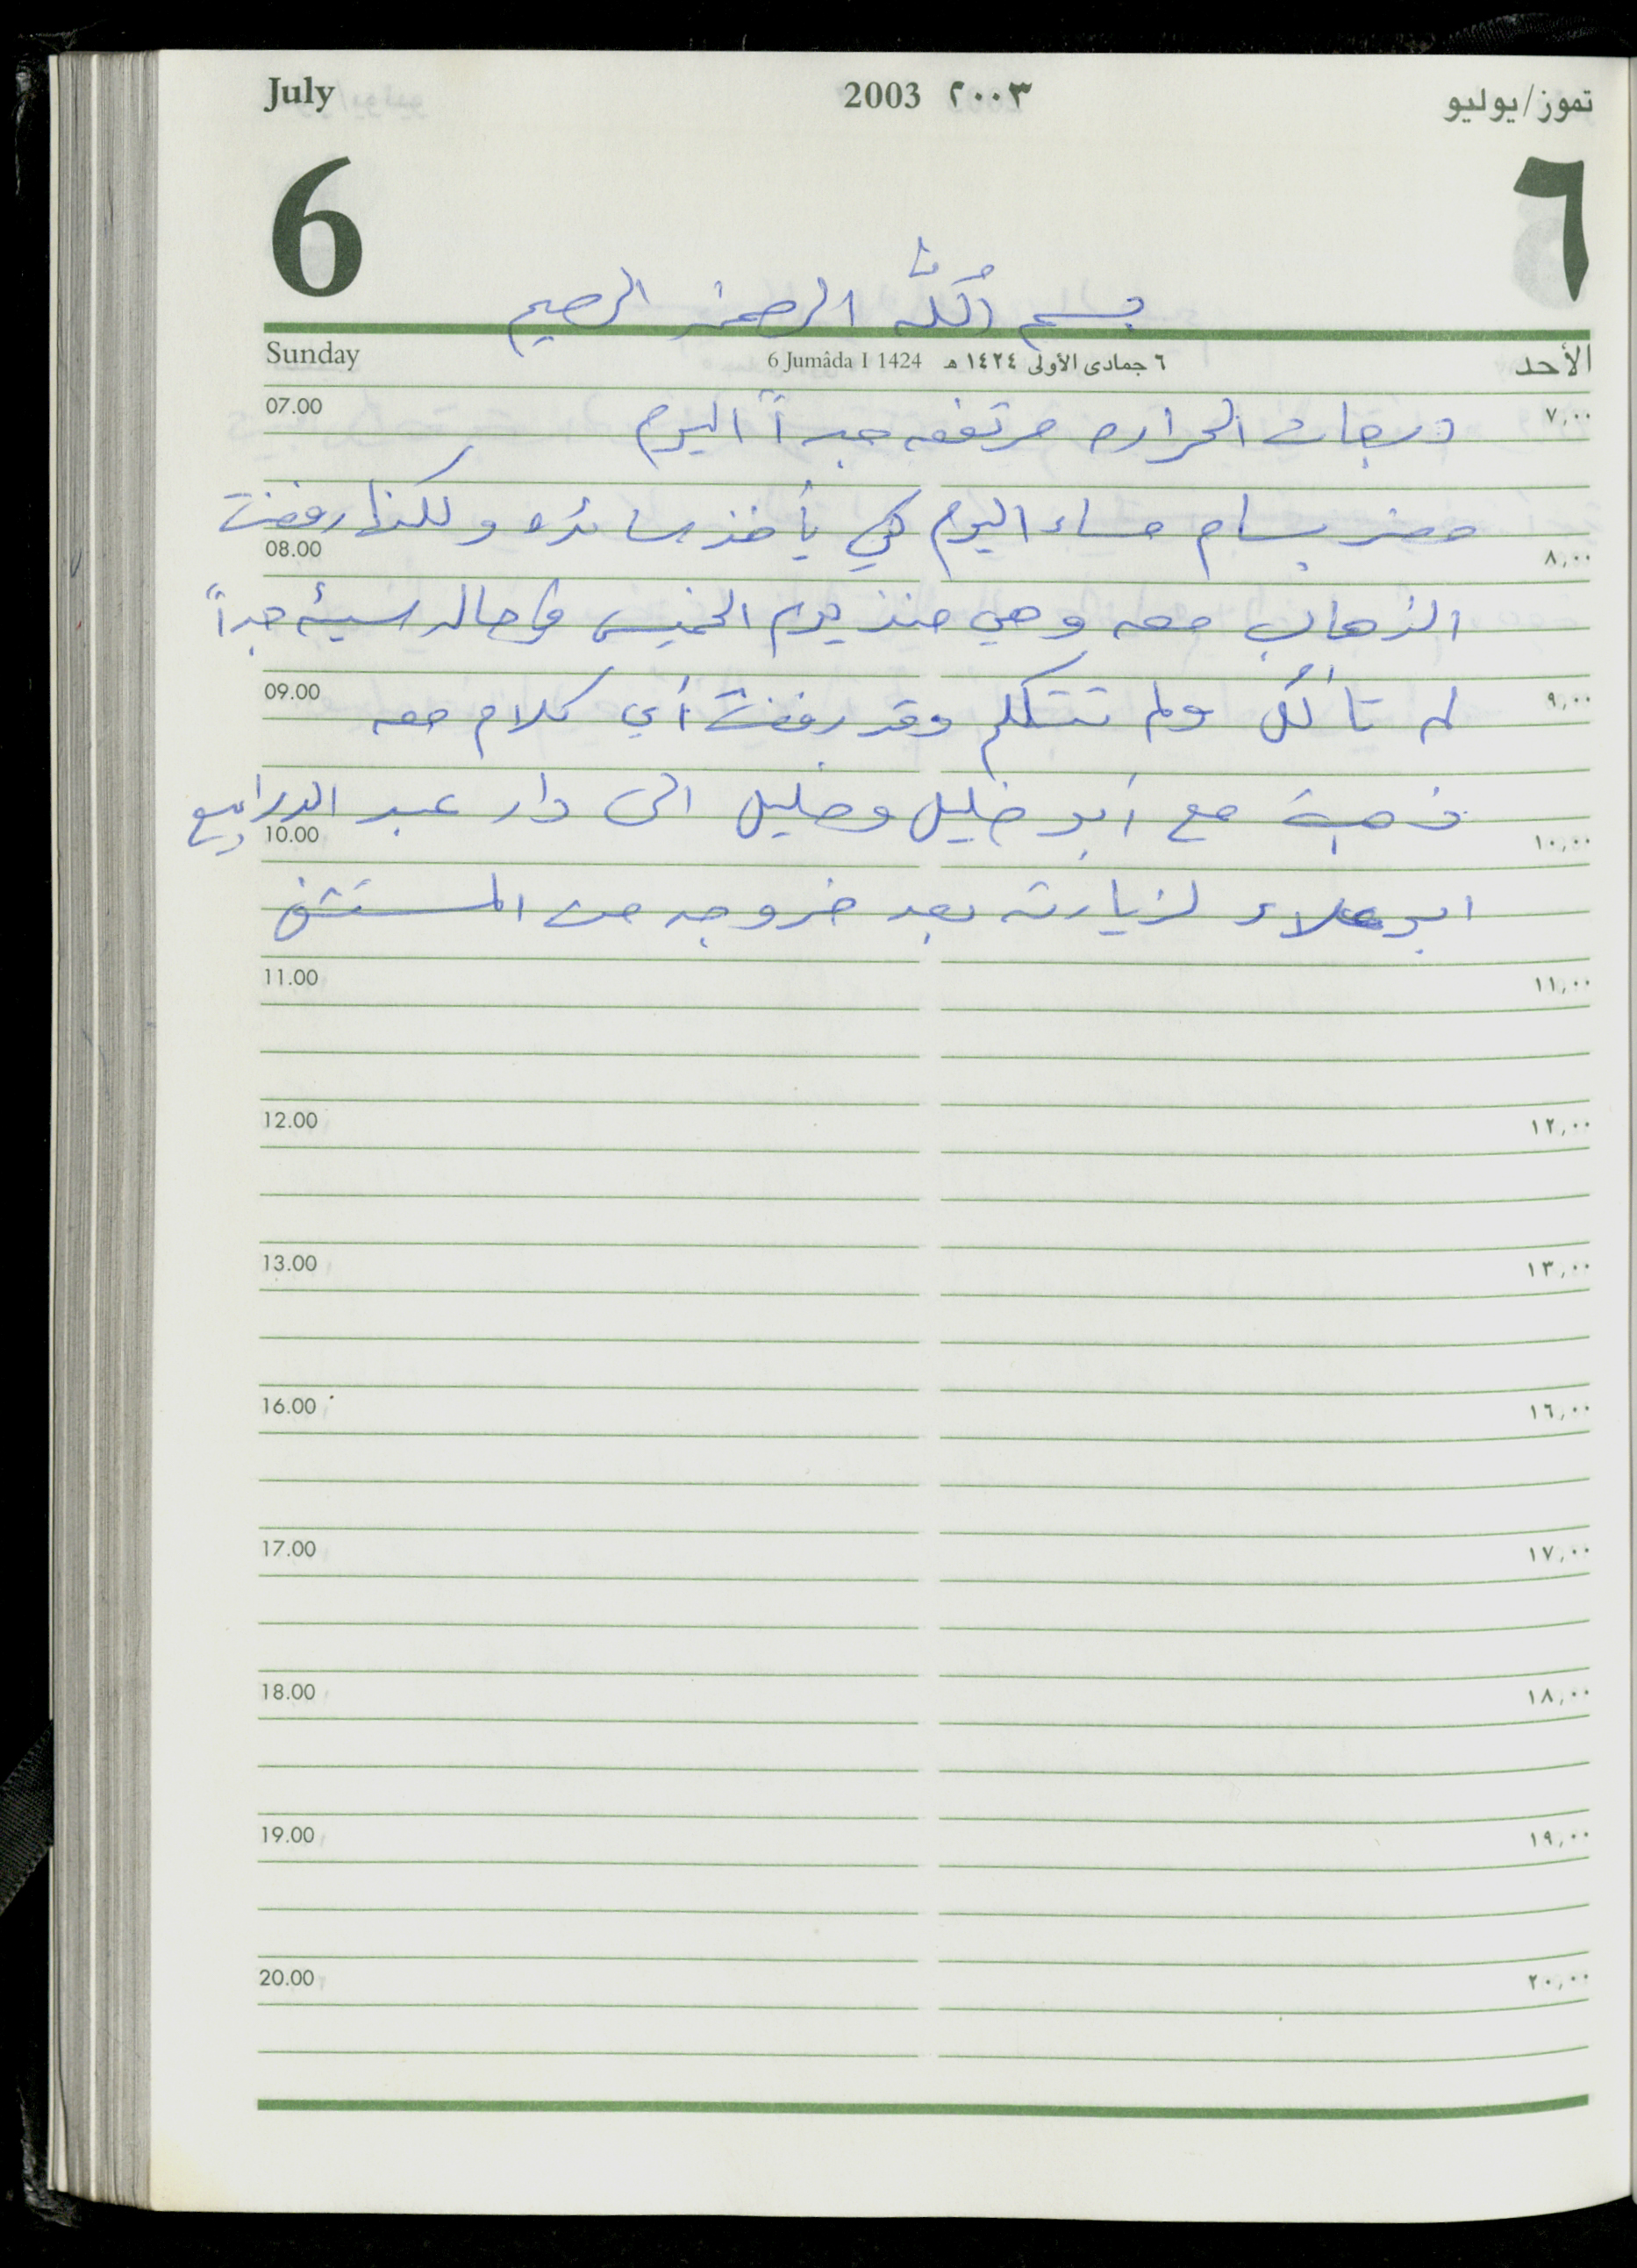 July 2003 ٢٠٠٣ تموز/يوليو
6 ٦
بسم الله الرحمن الرحيم
Sunday 6 Jumâda I 1424 ٦ جمادى الأولى ١٤٢٤ هـ الأحد
07.00 درجات الحراره مرتفعه جداً اليوم ٧,٠٠
حضر بسام مساء اليوم لكي يأخذ سائده ولكنها رفضت
08.00 ٨,٠٠
الذهاب معه وهي منذ يوم الخميس في حاله سيئه جداً
09.00 لم تأكل ولم تتكلم وقد رفضت أي كلام معه ٩,٠٠
ذهبة مع أبو خليل وخليل الى دار عبد الدرابيع
10.00 ١٠,٠٠
ابو علاء لزيارته بعد خروجه من المستشفى
11.00 ١١,٠٠
12.00 ١٢,٠٠
13.00 ١٣,٠٠
16.00 ١٦,٠٠
17.00 ١٧,٠٠
18.00 ١٨,٠٠
19.00 ١٩,٠٠
20.00 ٢٠,٠٠